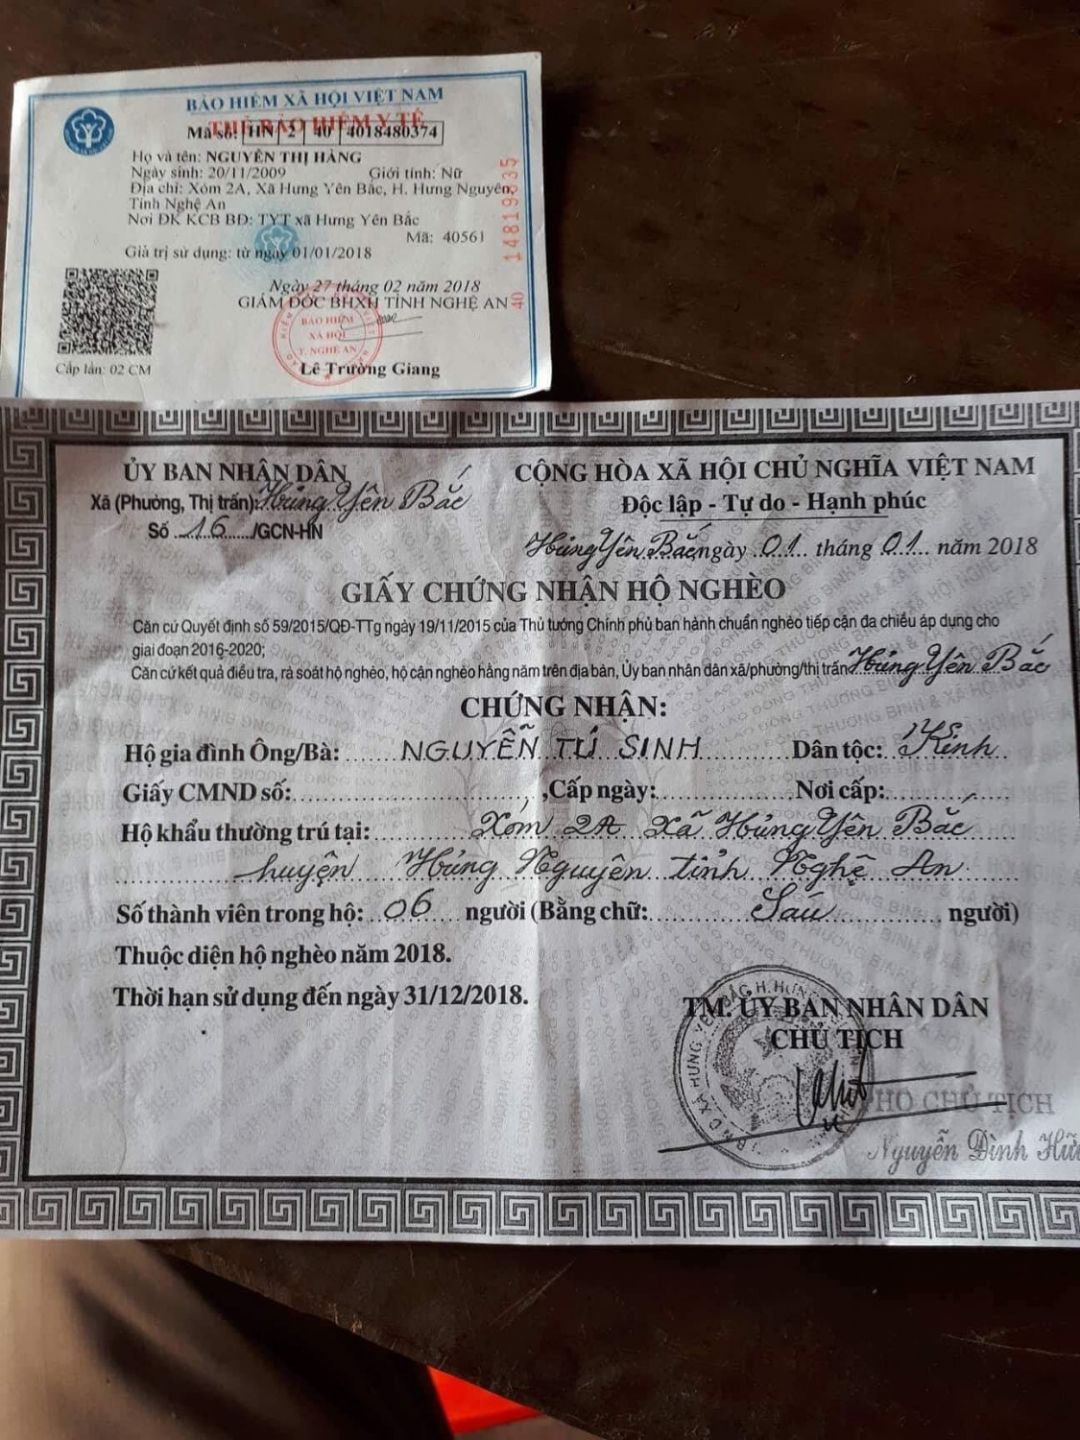 BẢO HIỂM XÃ HỘI VIỆT NAM
THẺ BẢO HIỂM Y TẾ
Mã số: HN 2 40 4018480374
Họ và tên: NGUYỄN THỊ HẰNG
Ngày sinh: 20/11/2009 Giới tính: Nữ
Địa chỉ: Xóm 2A, Xã Hưng Yên Bắc, H. Hưng Nguyên,
Tỉnh Nghệ An
Nơi ĐK KCB BĐ: TYT xã Hưng Yên Bắc
Mã: 40561
Giá trị sử dụng: từ ngày 01/01/2018
Ngày 27 tháng 02 năm 2018
GIÁM ĐỐC BHXH TỈNH NGHỆ AN
BẢO HIỂM
XÃ HỘI
T. NGHỆ AN
Lê Trường Giang
Cấp lần: 02 CM
40
ỦY BAN NHÂN DÂN
Xã (Phường, Thị trấn): Hưng Yên Bắc
Số 16 /GCN-HN
CỘNG HÒA XÃ HỘI CHỦ NGHĨA VIỆT NAM
Độc lập - Tự do - Hạnh phúc
Hưng Yên Bắc, ngày 01 tháng 01 năm 2018
GIẤY CHỨNG NHẬN HỘ NGHÈO
Căn cứ Quyết định số 59/2015/QĐ-TTg ngày 19/11/2015 của Thủ tướng Chính phủ ban hành chuẩn nghèo tiếp cận đa chiều áp dụng cho
giai đoạn 2016-2020;
Căn cứ kết quả điều tra, rà soát hộ nghèo, hộ cận nghèo hằng năm trên địa bàn, Ủy ban nhân dân xã/phường/thị trấn Hưng Yên Bắc
CHỨNG NHẬN:
Hộ gia đình Ông/Bà: NGUYỄN TÚ SINH Dân tộc: Kinh
Giấy CMND số: , Cấp ngày: Nơi cấp:
Hộ khẩu thường trú tại: Xóm 2A Xã Hưng Yên Bắc
huyện Hưng Nguyên tỉnh Nghệ An
Số thành viên trong hộ: 06 người (Bằng chữ: Sáu người)
Thuộc diện hộ nghèo năm 2018.
Thời hạn sử dụng đến ngày 31/12/2018.
TM. ỦY BAN NHÂN DÂN
CHỦ TỊCH
PHÓ CHỦ TỊCH
Nguyễn Đình